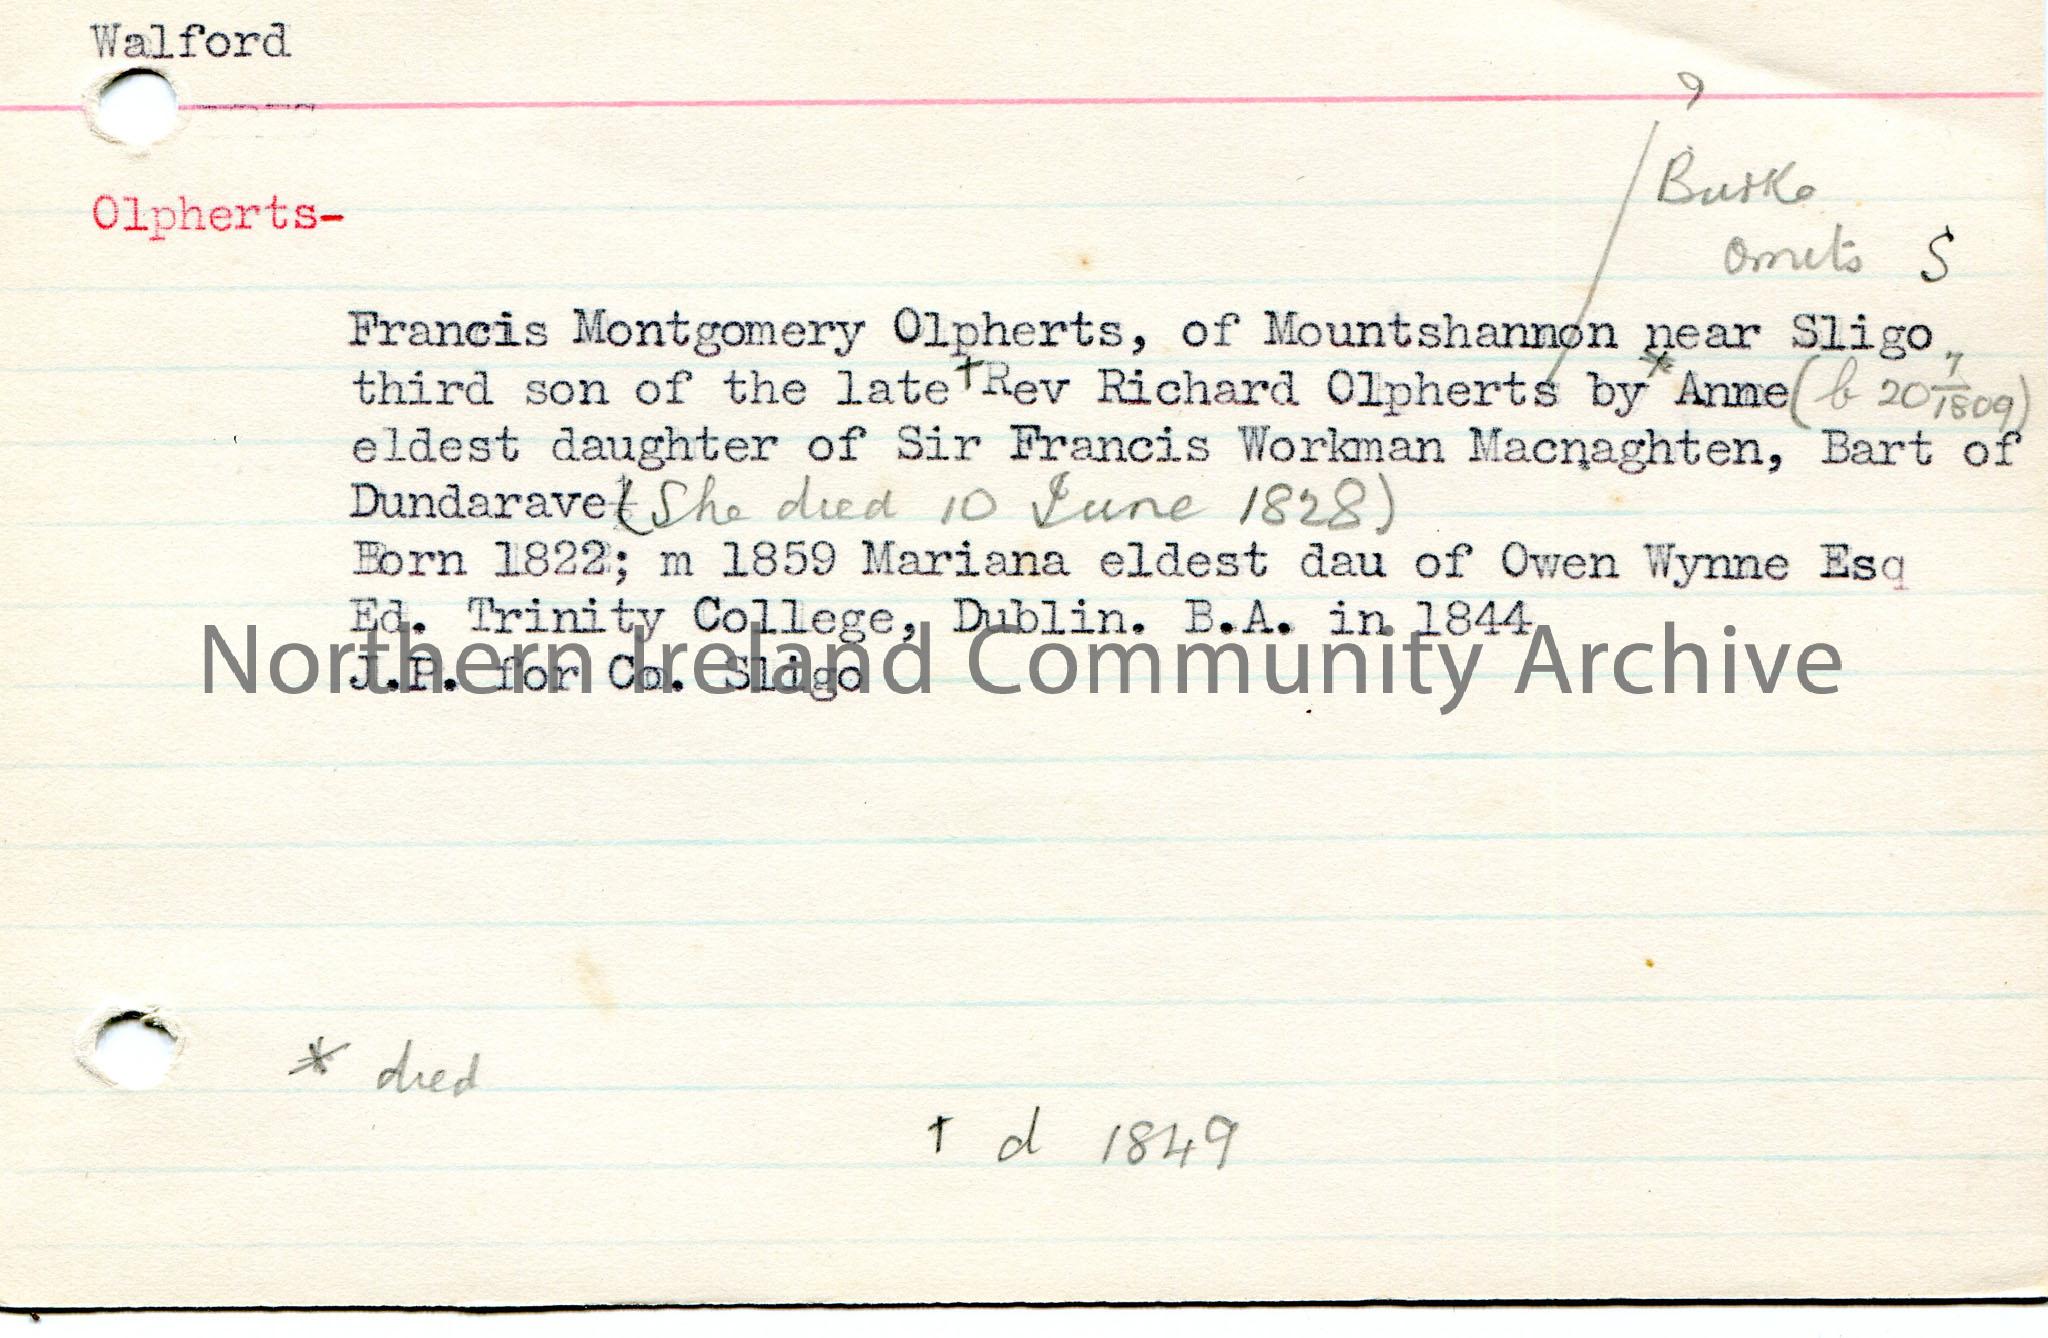 Walford
?
Burke
omits S
Olpherts-
Francis Montgomery Olpherts, of Mountshannon near Sligo,
third son of the late †Rev Richard Olpherts by * Anne (b 20 7/1809)
eldest daughter of Sir Francis Workman Macnaghten, Bart of
Dundarave (She died 10 June 1828)
Born 1822; m 1859 Mariana eldest dau of Owen Wynne Esq
Ed. Trinity College, Dublin. B.A. in 1844
J.P. for Co. Sligo
Northern Ireland Community Archive
* died
† d 1849